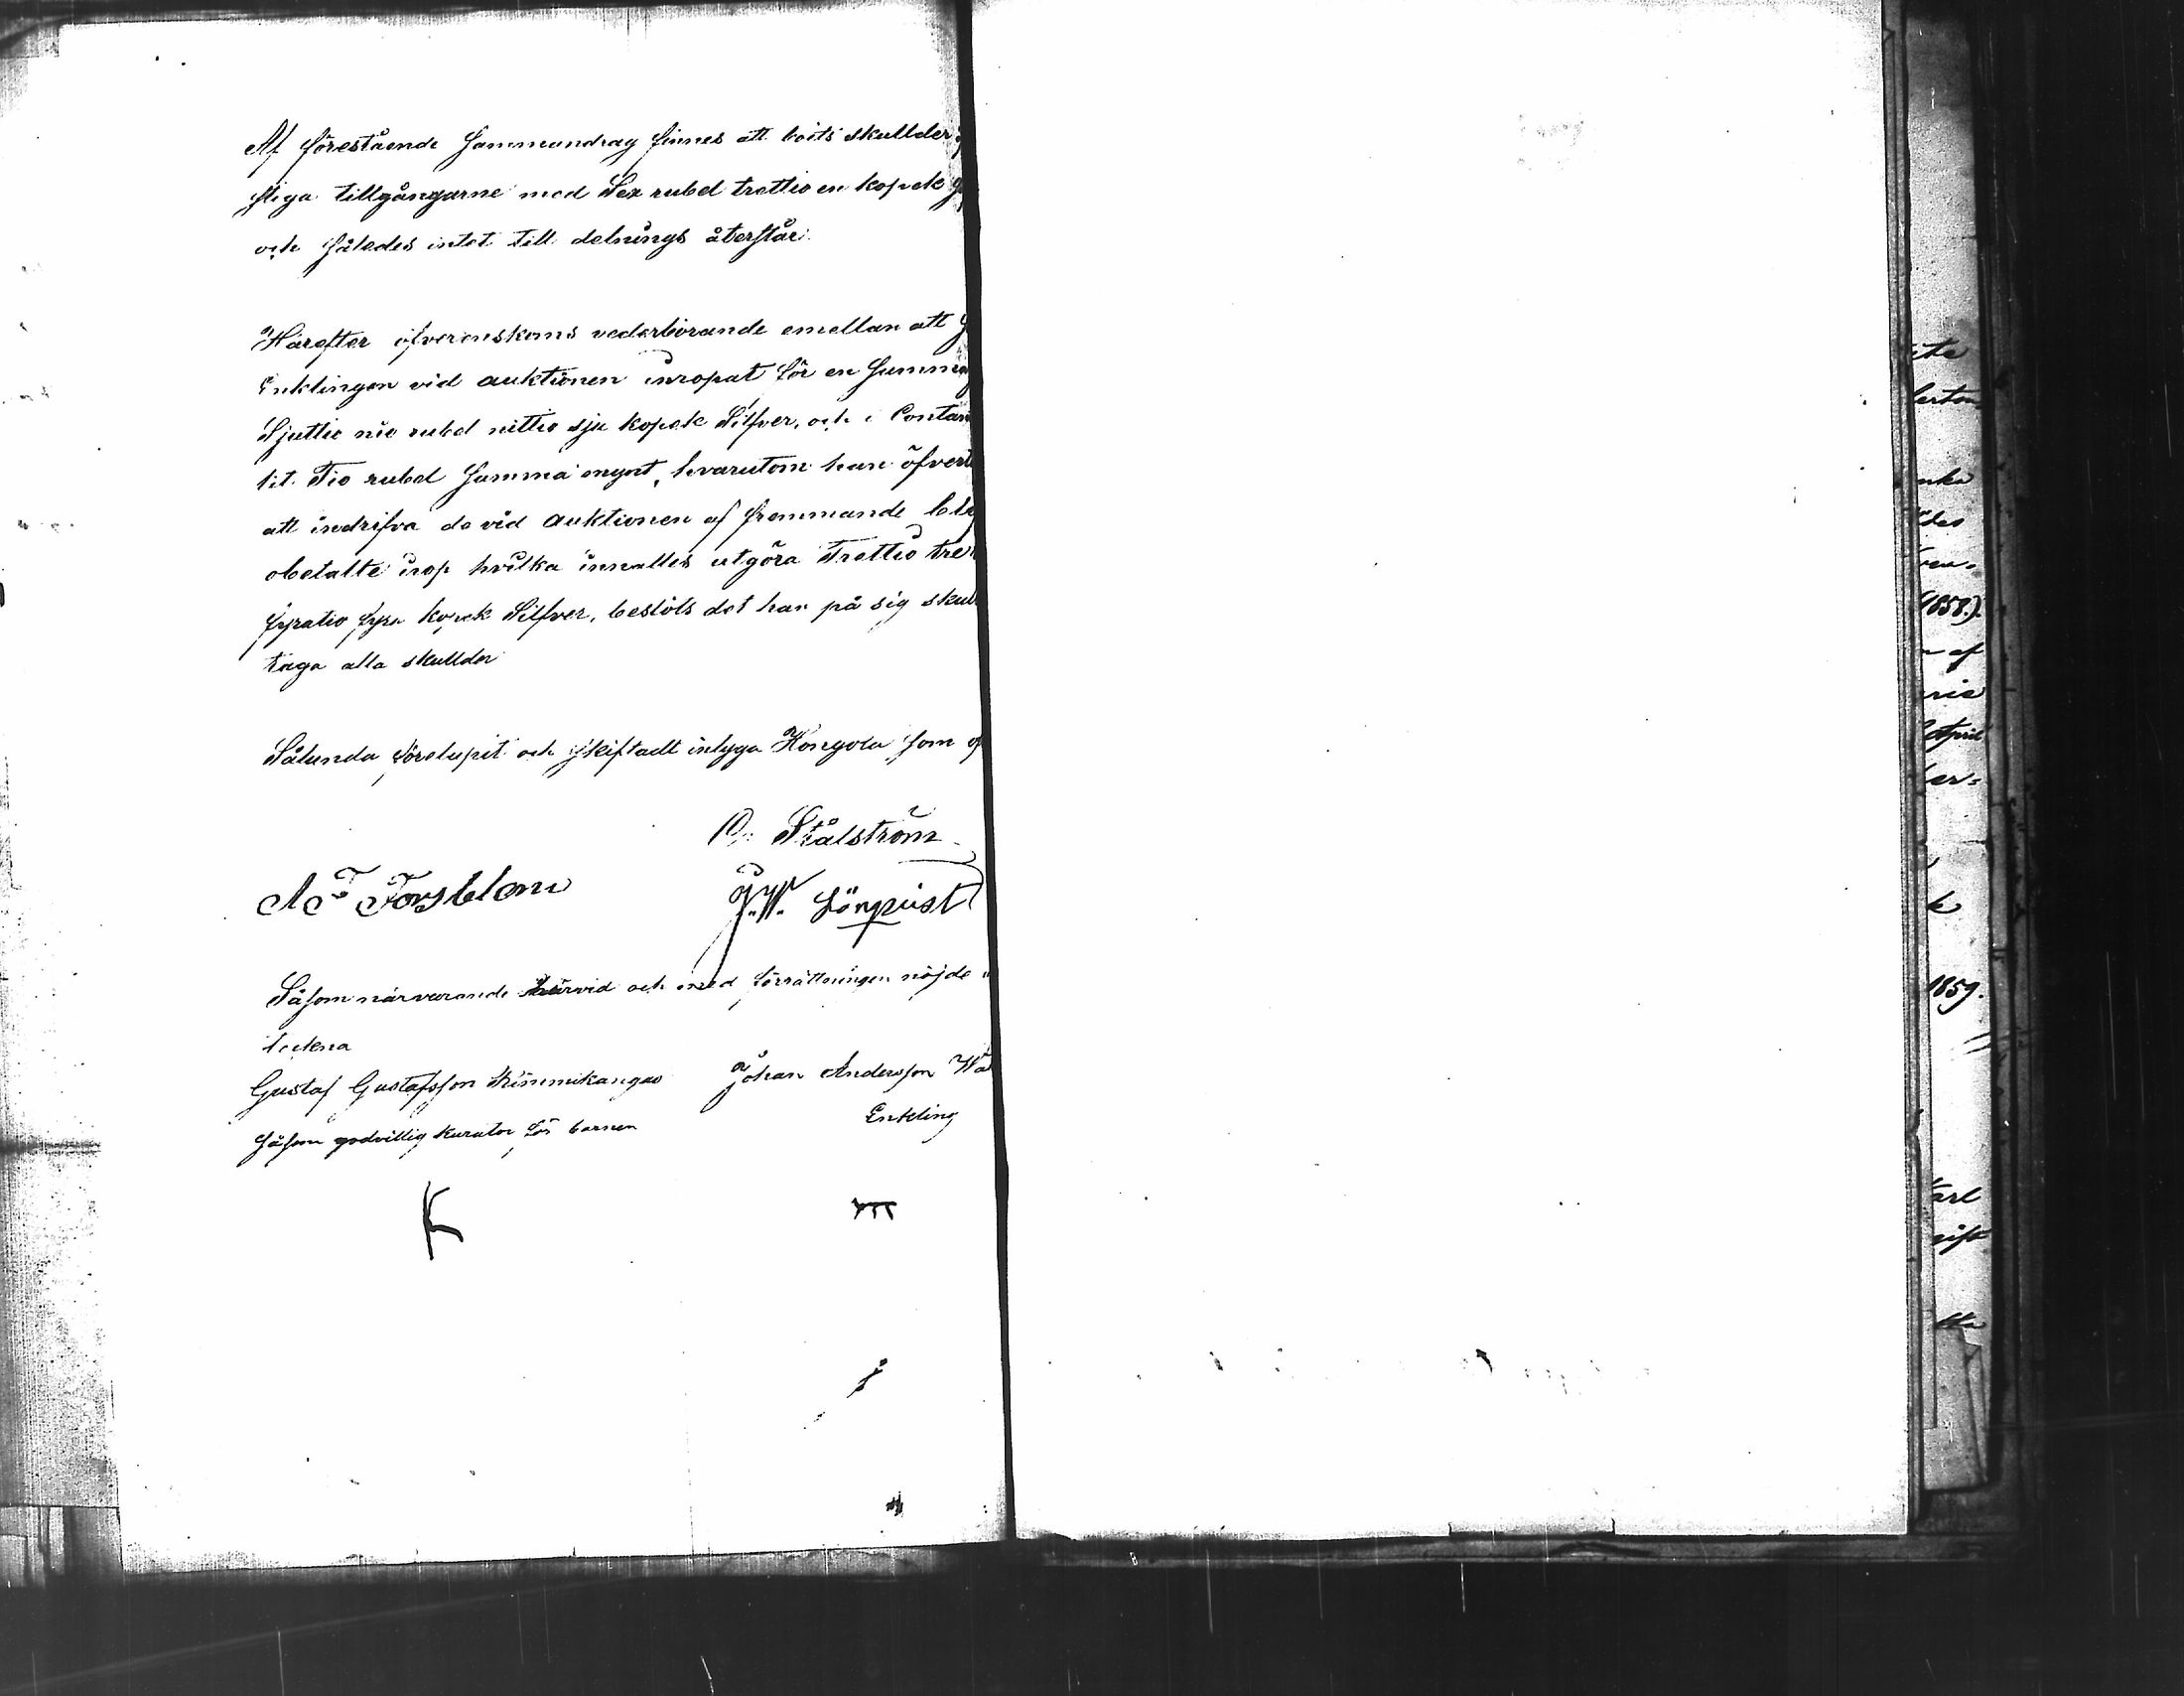 Af förestående Sammandrag finnes att boets skullder
stiga tillgångarne med Sex rubel trettio en kopek
och således intet till delnings återstår.
Härefter öfverenskoms vederbörande emellan att
Enklingen vid auktionen inropat för en Summa
Sjuttio nio rubel nittio sju kopek Silfver, och i Contan
Tio rubel Samma mynt, hvarutom han öfvert
att indrifva de vid auktionen af frammande
obetalte inrop hvilka innalles utgöra Trettio tre
fyratio fyra kopek Silfver, beslöts det han på sig skul
taga alla skullder
Sålunda förelupit och skiftadt inlyga Kongola som
Stålström
A F Forsblom
J. W. Lönqvist
Såsom närvarande härvid och med förrättningen nöjde
teckna
Gustaf Gustafsson Kinnikangas
Johan Andersson Wa
Enkling
Såsom godvillig kurator för barnen
ite
1858.).
af
April
1859.
Karl
gift